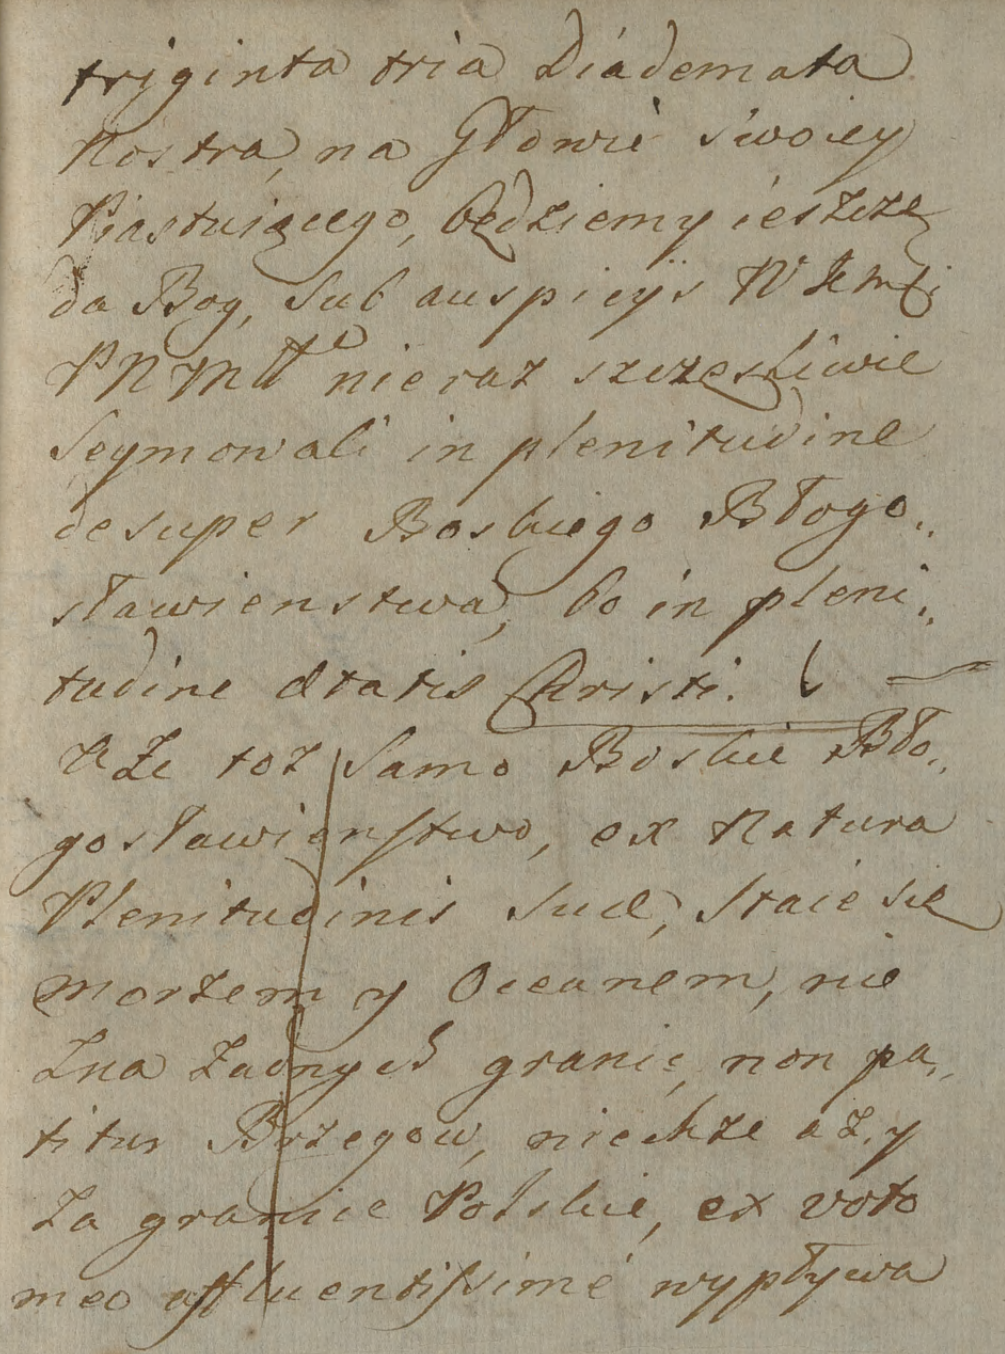 trjginta tria Diademata
Nostra, na Głowie swoiey
Piastuiącego, będziemy ieszcze
da Bog, sub auspicijs W Jemści
PNM nieraz szczęsliwie
Seymowali in plenitudine
desuper Boskiego Błogo„
sławienstwa, bo in pleni„
tudine ætatis Christi.
A Że toż samo Boskie Bło„
gosławienstwo, ex Natura
Plenitudinis suæ, staie się
morzem y Oceanem, nie
Zna Żadnych granic, non pa„
titur Brzegow, niechże aż y
Za granice Polskie, ex voto
meo affluentissimé wypływa